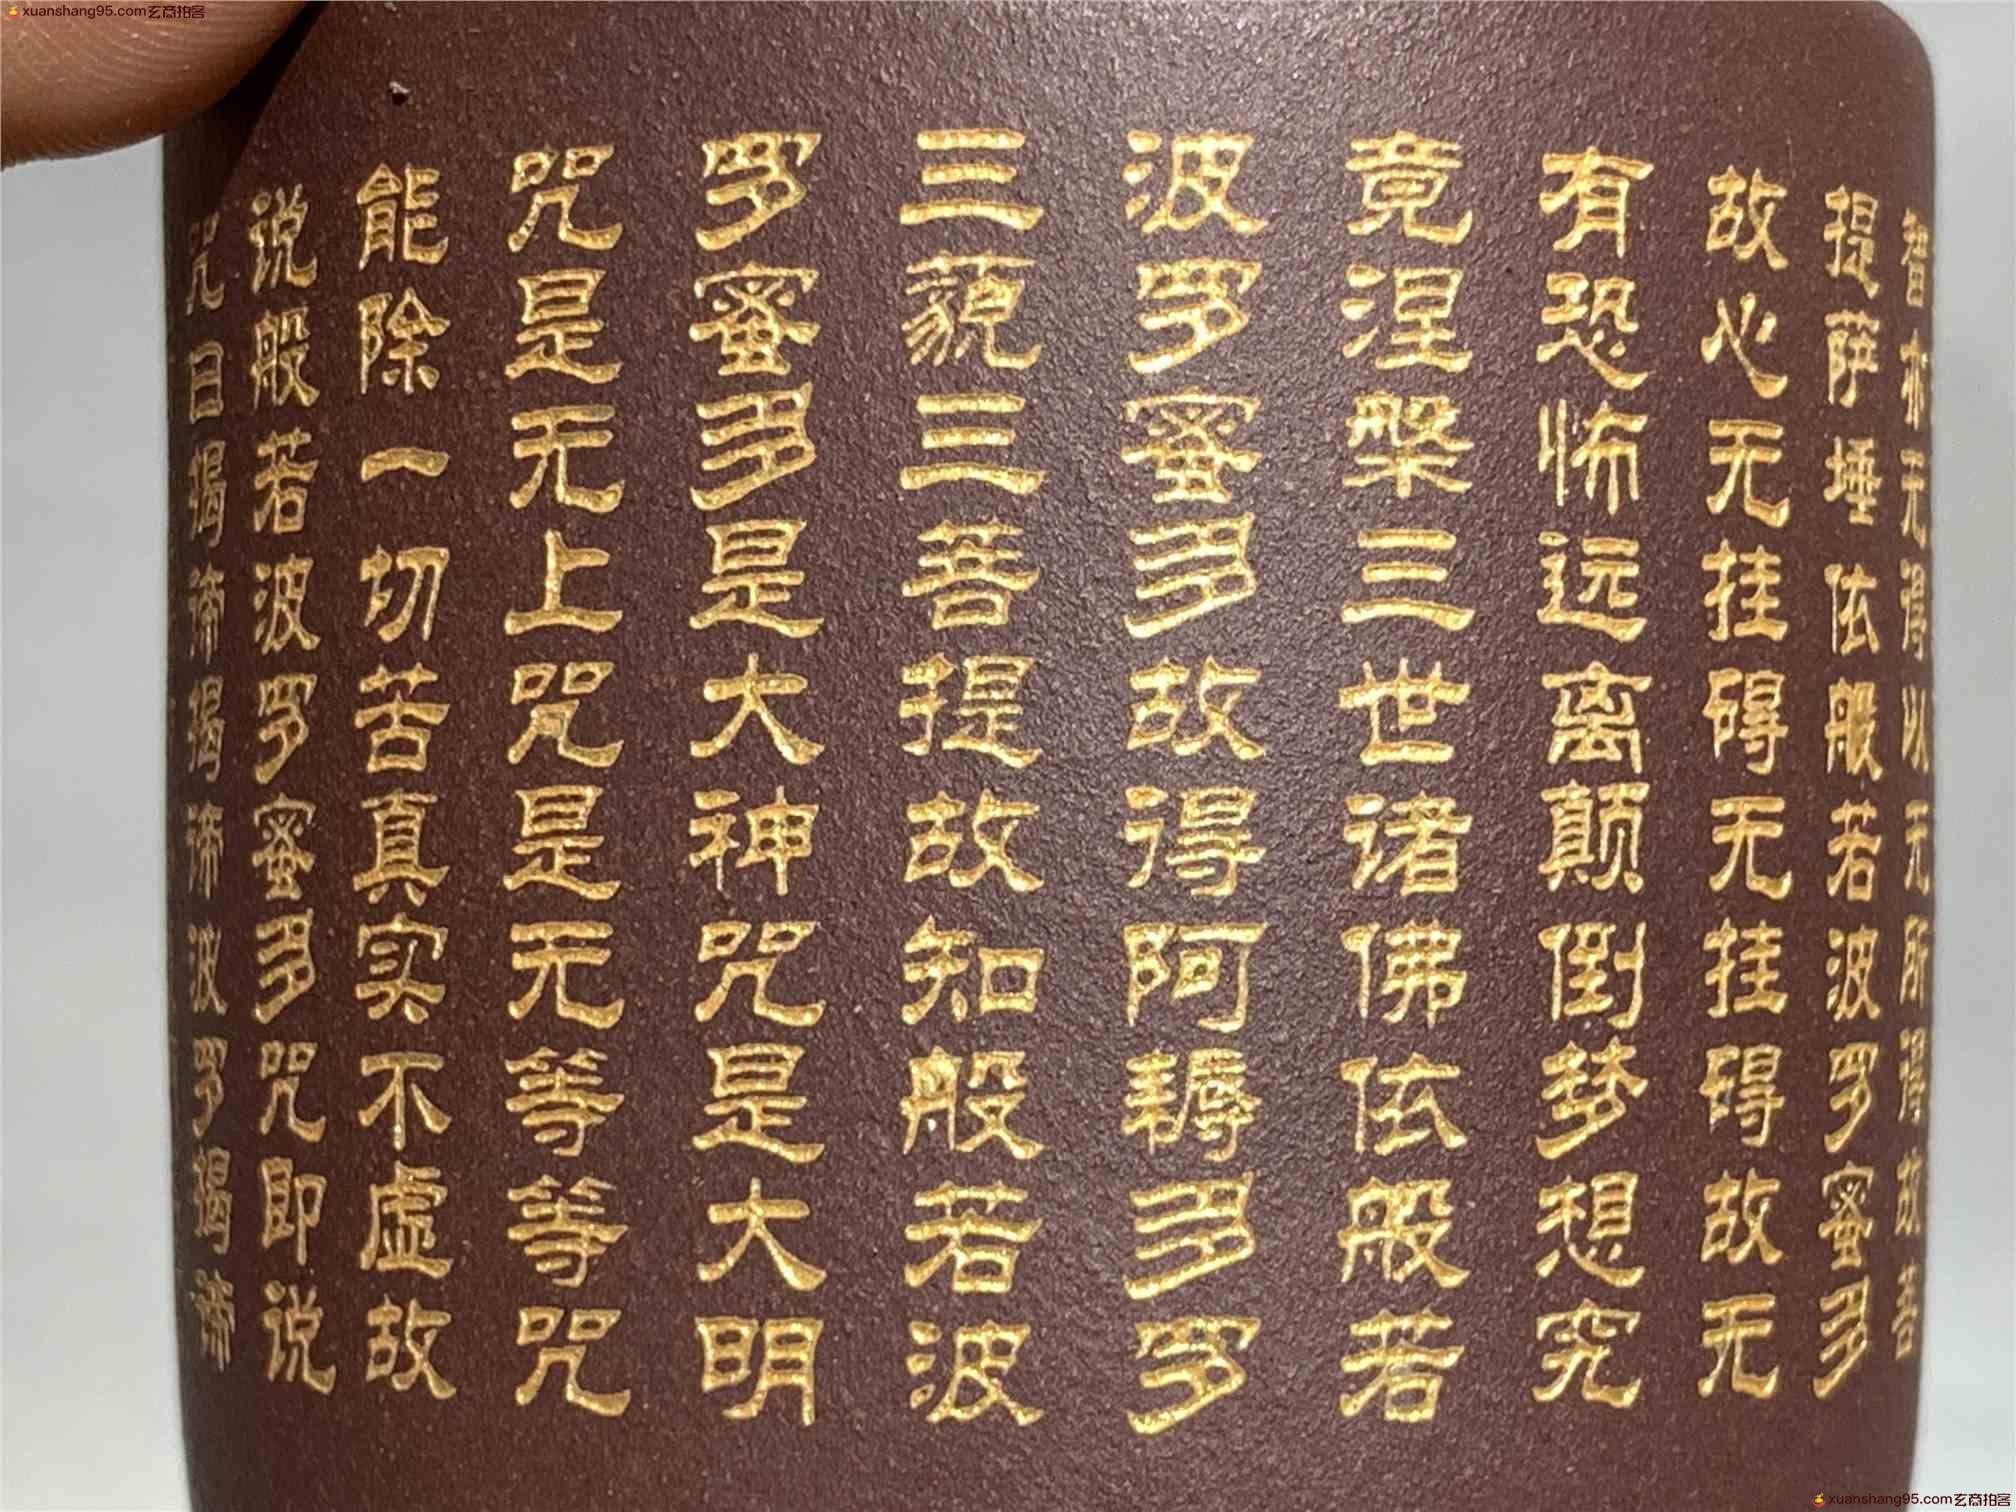 xuanshang95.com玄商拍客
智亦无得以无所得故菩
提萨埵依般若波罗蜜多
故心无挂碍无挂碍故无
有恐怖远离颠倒梦想究
竟涅槃三世诸佛依般若
波罗蜜多故得阿耨多罗
三藐三菩提故知般若波
罗蜜多是大神咒是大明
咒是无上咒是无等等咒
能除一切苦真实不虚故
说般若波罗蜜多咒即说
咒曰揭谛揭谛波罗揭谛
xuanshang95.com玄商拍客